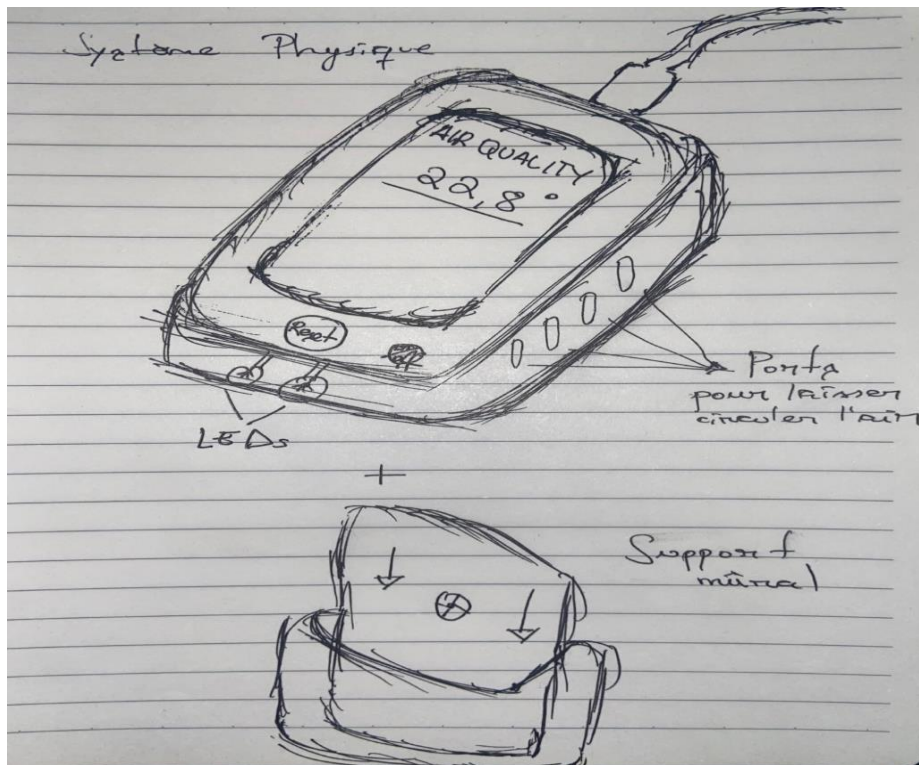 Système Physique
AIR QUALITY
22,8°
Reset
LEDs
Ports
pour laisser
circuler l'air
+
Support
mûral